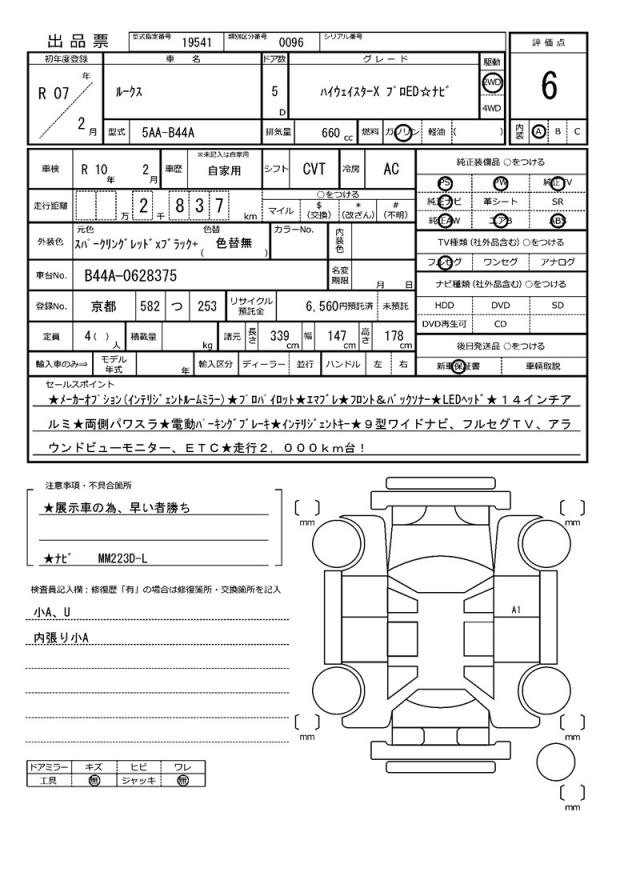 出品票 型式指定番号 19541 類別区分番号 0096 シリアル番号
初年度登録 車名 ドア数 グレード 駆動 評価点
R 07 年 2 月 ルークス 5 D ハイウェイスターX プロED☆ナビ 2WD 4WD 6
型式 5AA-B44A 排気量 660 cc 燃料 ガソリン 軽油 ( ) 内装 A B C
車検 R 10 年 2 月 車歴 ※未記入は自家用 自家用 シフト CVT 冷房 AC 純正装備品 ○をつける
PS PW 純正TV
走行距離 万 2 千 8 3 7 km ○をつける 純正ナビ 革シート SR
マイル $ (交換) * (改ざん) # (不明) 純正AW エアB ABS
外装色 元色 スパークリングレッドxブラック+ 色替 ( 色替無 ) カラーNo. 内装色 TV種類 (社外品含む) ○をつける
フルセグ ワンセグ アナログ
車台No. B44A-0628375 名変期限 月 日 ナビ種類 (社外品含む) ○をつける
登録No. 京都 582 つ 253 リサイクル預託金 6,560円預託済 未預託 HDD DVD SD
DVD再生可 CD
定員 4( ) 人 積載量 kg 諸元 長さ 339 cm 幅 147 cm 高さ 178 cm 後日発送品 ○をつける
輸入車のみ⇒ モデル年式 年 輸入区分 ディーラー 並行 ハンドル 左 右 新車保証書 車輌取説
セールスポイント
★メーカーオプション(インテリジェントルームミラー)★プロパイロット★エマブレ★フロント&バックソナー★LEDヘッド★14インチア
ルミ★両側パワスラ★電動パーキングブレーキ★インテリジェントキー★9型ワイドナビ、フルセグTV、アラ
ウンドビューモニター、ETC★走行2,000km台!
注意事項・不具合箇所
★展示車の為、早い者勝ち
★ナビ MM223D-L
検査員記入欄:修復歴「有」の場合は修復箇所・交換箇所を記入
小A、U
内張り小A
A1
mm
mm
mm
mm
mm
ドアミラー キズ ヒビ ワレ
工具 無 ジャッキ 無